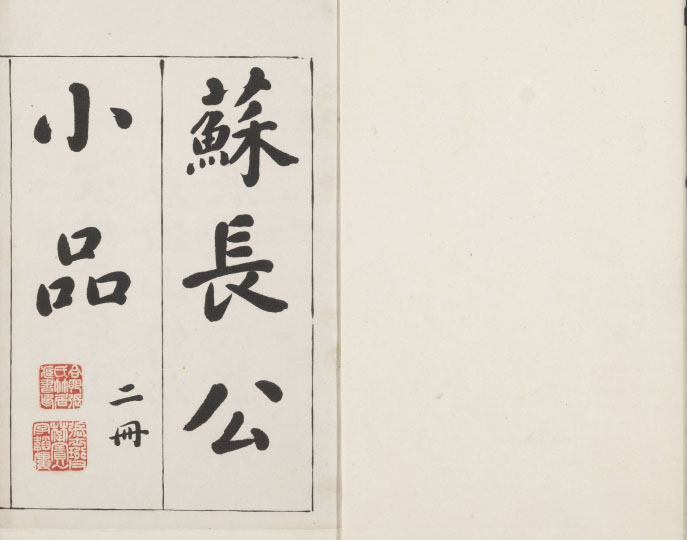 蘇長公
小品
二冊